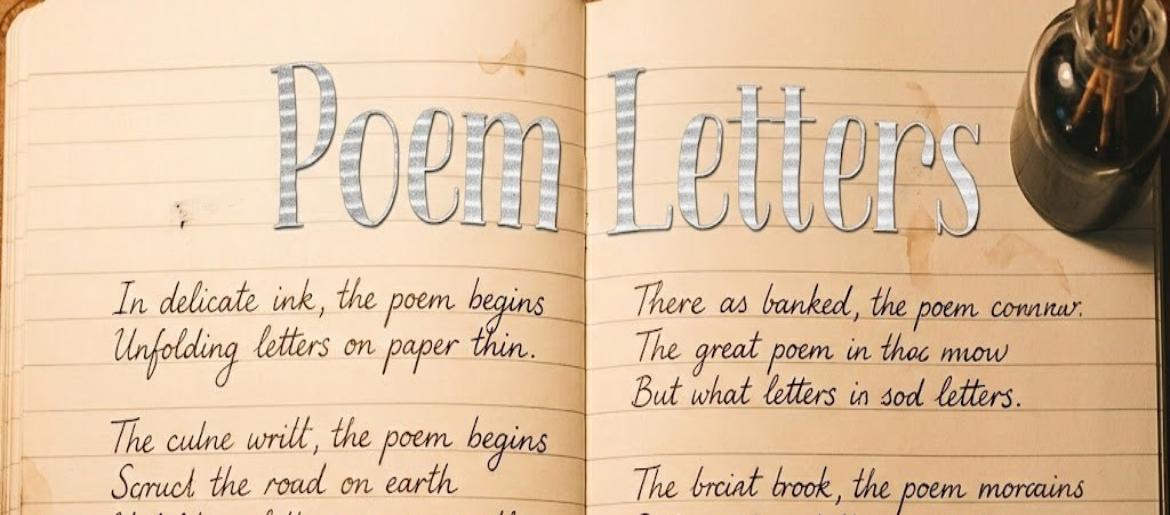 Poem Letters
In delicate ink, the poem begins
Unfolding letters on paper thin.
The culne writt, the poem begins
the road on earth
There as banked, the poem
The great poem in thoc mow
But what letters in sod letters.
The brciat brook, the poem morcains